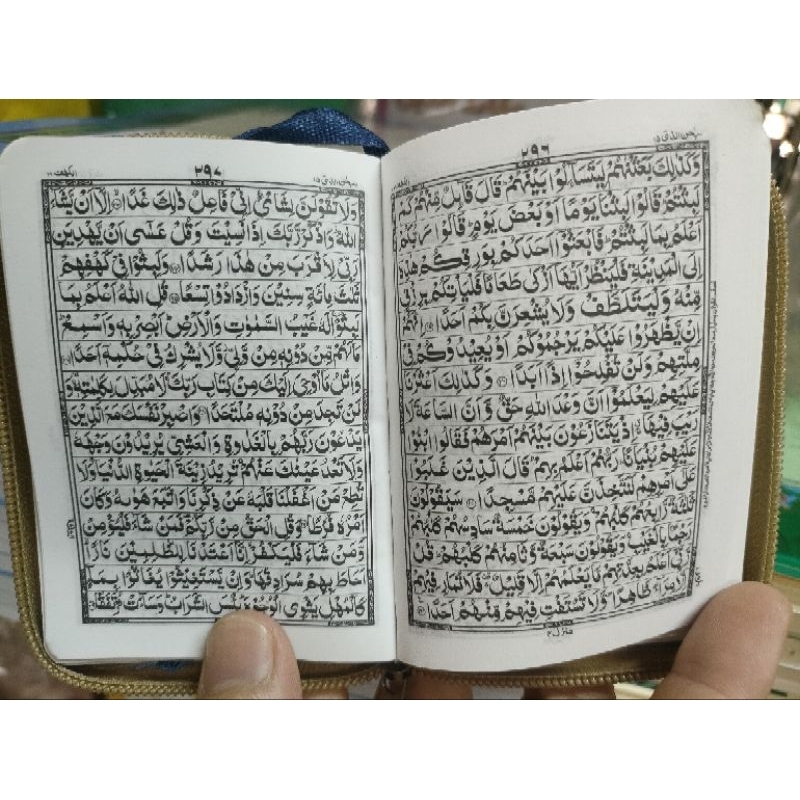 ٢٩٦
وَكَذٰلِكَ بَعَثْنٰهُمْ لِيَتَسَآءَلُوْا بَيْنَهُمْ ؕ قَالَ قَآئِلٌ مِّنْهُمْ كَمْ
لَبِثْتُمْ ؕ قَالُوْا لَبِثْنَا يَوْمًا اَوْ بَعْضَ يَوْمٍ ؕ قَالُوْا رَبُّكُمْ
اَعْلَمُ بِمَا لَبِثْتُمْ ؕ فَابْعَثُوْۤا اَحَدَكُمْ بِوَرِقِكُمْ هٰذِهٖۤ
اِلَى الْمَدِيْنَةِ فَلْيَنْظُرْ اَيُّهَاۤ اَزْكٰى طَعَامًا فَلْيَاْتِكُمْ بِرِزْقٍ
مِّنْهُ وَلْيَتَلَطَّفْ وَلَا يُشْعِرَنَّ بِكُمْ اَحَدًا ۝ اِنَّهُمْ
اِنْ يَّظْهَرُوْا عَلَيْكُمْ يَرْجُمُوْكُمْ اَوْ يُعِيْدُوْكُمْ فِيْ
مِلَّتِهِمْ وَلَنْ تُفْلِحُوْۤا اِذًا اَبَدًا ۝ وَكَذٰلِكَ اَعْثَرْنَا
عَلَيْهِمْ لِيَعْلَمُوْۤا اَنَّ وَعْدَ اللّٰهِ حَقٌّ وَّاَنَّ السَّاعَةَ لَا
رَيْبَ فِيْهَا ۚ اِذْ يَتَنَازَعُوْنَ بَيْنَهُمْ اَمْرَهُمْ فَقَالُوا ابْنُوْا
عَلَيْهِمْ بُنْيَانًا ؕ رَبُّهُمْ اَعْلَمُ بِهِمْ ؕ قَالَ الَّذِيْنَ غَلَبُوْا
عَلٰۤى اَمْرِهِمْ لَنَتَّخِذَنَّ عَلَيْهِمْ مَّسْجِدًا ۝ سَيَقُوْلُوْنَ
ثَلٰثَةٌ رَّابِعُهُمْ كَلْبُهُمْ ۚ وَيَقُوْلُوْنَ خَمْسَةٌ سَادِسُهُمْ كَلْبُهُمْ
رَجْمًۢا بِالْغَيْبِ ۚ وَيَقُوْلُوْنَ سَبْعَةٌ وَّثَامِنُهُمْ كَلْبُهُمْ ؕ قُلْ
رَّبِّيْۤ اَعْلَمُ بِعِدَّتِهِمْ مَّا يَعْلَمُهُمْ اِلَّا قَلِيْلٌ ۫ فَلَا تُمَارِ فِيْهِمْ
اِلَّا مِرَآءً ظَاهِرًا ۪ وَّلَا تَسْتَفْتِ فِيْهِمْ مِّنْهُمْ اَحَدًا ۝
٢٩٧
وَلَا تَقُوْلَنَّ لِشَايْءٍ اِنِّيْ فَاعِلٌ ذٰلِكَ غَدًا ۝ اِلَّاۤ اَنْ يَّشَآءَ
اللّٰهُ ؗ وَاذْكُرْ رَّبَّكَ اِذَا نَسِيْتَ وَقُلْ عَسٰۤى اَنْ يَّهْدِيَنِ
رَبِّيْ لِاَقْرَبَ مِنْ هٰذَا رَشَدًا ۝ وَلَبِثُوْا فِيْ كَهْفِهِمْ
ثَلٰثَ مِائَةٍ سِنِيْنَ وَازْدَادُوْا تِسْعًا ۝ قُلِ اللّٰهُ اَعْلَمُ بِمَا
لَبِثُوْا ۚ لَهٗ غَيْبُ السَّمٰوٰتِ وَالْاَرْضِ ؕ اَبْصِرْ بِهٖ وَاَسْمِعْ ؕ
مَا لَهُمْ مِّنْ دُوْنِهٖ مِنْ وَّلِيٍّ ؗ وَّلَا يُشْرِكُ فِيْ حُكْمِهٖۤ اَحَدًا ۝
وَاتْلُ مَاۤ اُوْحِيَ اِلَيْكَ مِنْ كِتَابِ رَبِّكَ ؕ لَا مُبَدِّلَ لِكَلِمٰتِهٖ ۫ وَ
لَنْ تَجِدَ مِنْ دُوْنِهٖ مُلْتَحَدًا ۝ وَاصْبِرْ نَفْسَكَ مَعَ الَّذِيْنَ
يَدْعُوْنَ رَبَّهُمْ بِالْغَدٰوةِ وَالْعَشِيِّ يُرِيْدُوْنَ وَجْهَهٗ
وَلَا تَعْدُ عَيْنٰكَ عَنْهُمْ ۚ تُرِيْدُ زِيْنَةَ الْحَيٰوةِ الدُّنْيَا ۚ وَلَا
تُطِعْ مَنْ اَغْفَلْنَا قَلْبَهٗ عَنْ ذِكْرِنَا وَاتَّبَعَ هَوٰىهُ وَكَانَ
اَمْرُهٗ فُرُطًا ۝ وَقُلِ الْحَقُّ مِنْ رَّبِّكُمْ ۫ فَمَنْ شَآءَ فَلْيُؤْمِنْ
وَّمَنْ شَآءَ فَلْيَكْفُرْ ۙ اِنَّاۤ اَعْتَدْنَا لِلظّٰلِمِيْنَ نَارًا ۙ
اَحَاطَ بِهِمْ سُرَادِقُهَا ؕ وَاِنْ يَّسْتَغِيْثُوْا يُغَاثُوْا بِمَآءٍ
كَالْمُهْلِ يَشْوِي الْوُجُوْهَ ؕ بِئْسَ الشَّرَابُ ؕ وَسَآءَتْ مُرْتَفَقًا ۝